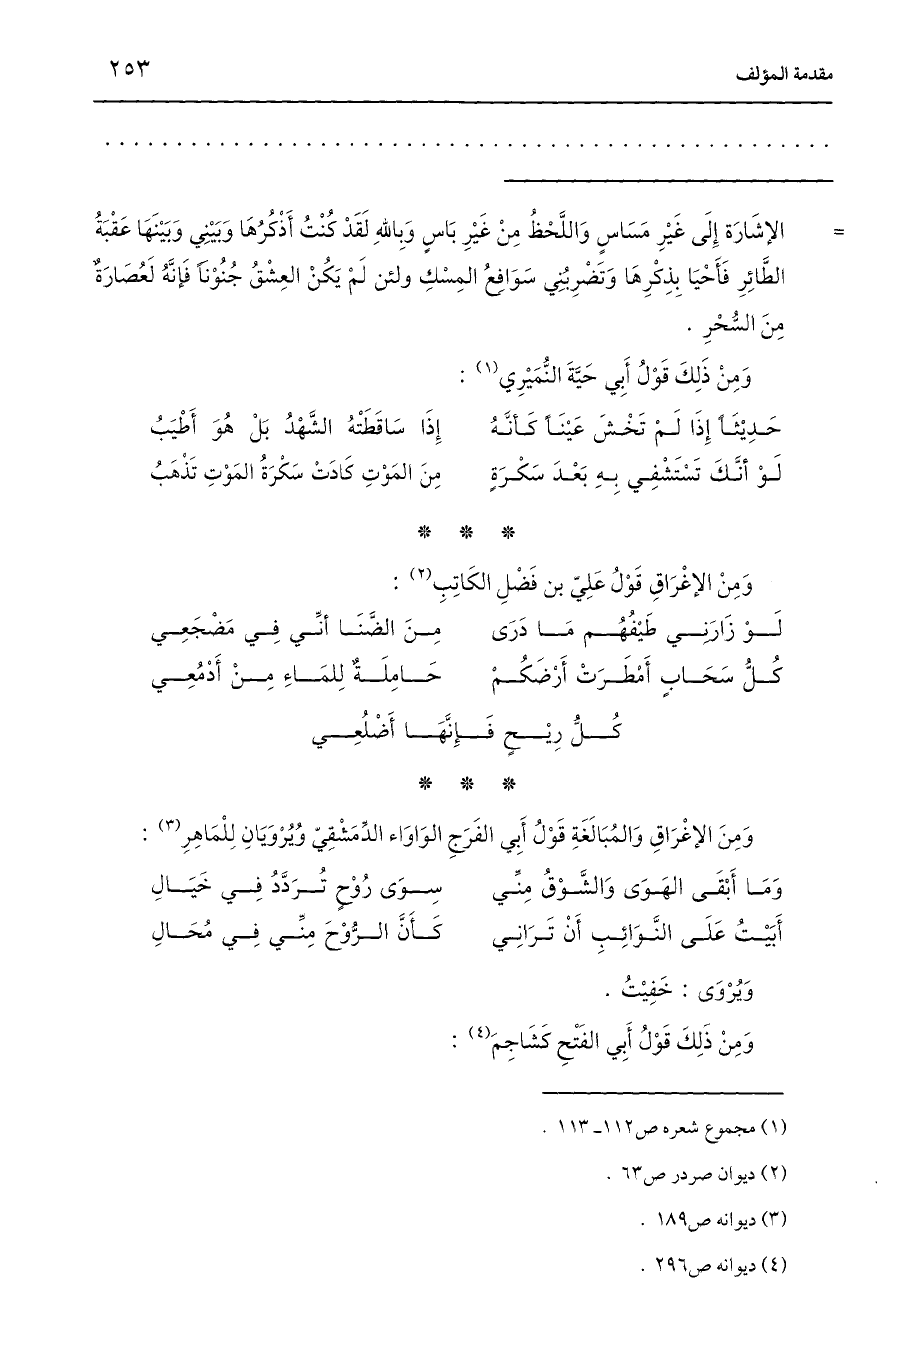 مقدمة المؤلف ٢٥٣
. . . . . . . . . . . . . . . . . . . . . . . . . . . . . . . . . . . . . . . . . . . . . . . . . . .
= الإشَارَة إِلَى غَيْرِ مَسَاسٍ وَاللَّحْظُ مِنْ غَيْرِ بَاسٍ وَبِاللهِ لَقَدْ كُنْتُ أَذْكُرُهَا وَبَيْنِي وَبَيْنَهَا عَقْبَةُ
الطَّائِرِ فَأَحْيَا بِذِكْرِهَا وَتَضْرِبُنِي سَوَافِعُ المِسْكِ ولئن لَمْ يَكُنْ العِشْقُ جُنُوْناً فَإِنَّهُ لَعُصَارَةٌ
مِنَ السُّحْرِ .
وَمِنْ ذَلِكَ قَوْلُ أَبِي حَيَّةَ النُّمَيْرِي(١) :
حَدِيْثَاً إِذَا لَمْ تَخْشَ عَيْنَاً كَأنَّهُ إِذَا سَاقَطَتْهُ الشَّهْدُ بَلْ هُوَ أَطْيَبُ
لَوْ أنَّكَ تَسْتَشْفِي بِهِ بَعْدَ سَكْرَةٍ مِنَ المَوْتِ كَادَتْ سَكْرَةُ المَوْتِ تَذْهَبُ
* * *
وَمِنْ الإغْرَاقِ قَوْلُ عَلِيّ بن فَضْلِ الكَاتِبِ(٢) :
لَوْ زَارَنِي طَيْفُهُم مَا دَرَى مِنَ الضَّنَا أنِّي فِي مَضْجَعِي
كُلُّ سَحَابٍ أَمْطَرَتْ أَرْضَكُمْ حَامِلَةٌ لِلمَاءِ مِنْ أَدْمُعِي
كُلُّ رِيْحٍ فَإِنَّهَا أَضْلُعِي
* * *
وَمِنَ الإغْرَاقِ وَالمُبَالَغَةِ قَوْلُ أَبِي الفَرَجِ الوَاوَاء الدِّمَشْقِيّ وَيُرْوَيَانِ لِلْمَاهِرِ(٣) :
وَمَا أَبْقَى الهَوَى وَالشَّوْقُ مِنِّي سِوَى رُوْحٍ تُرَدَّدُ فِي خَيَالِ
أَبَيْتُ عَلَى النَّوَائِبِ أَنْ تَرَانِي كَأَنَّ الرُّوْحَ مِنِّي فِي مُحَالِ
وَيُرْوَى : خَفِيْتُ .
وَمِنْ ذَلِكَ قَوْلُ أَبِي الفَتْحِ كَشَاجِمَ(٤) :
(١) مجموع شعره ص١١٢ـ١١٣ .
(٢) ديوان صردر ص٦٣ .
(٣) ديوانه ص١٨٩ .
(٤) ديوانه ص٢٩٦ .